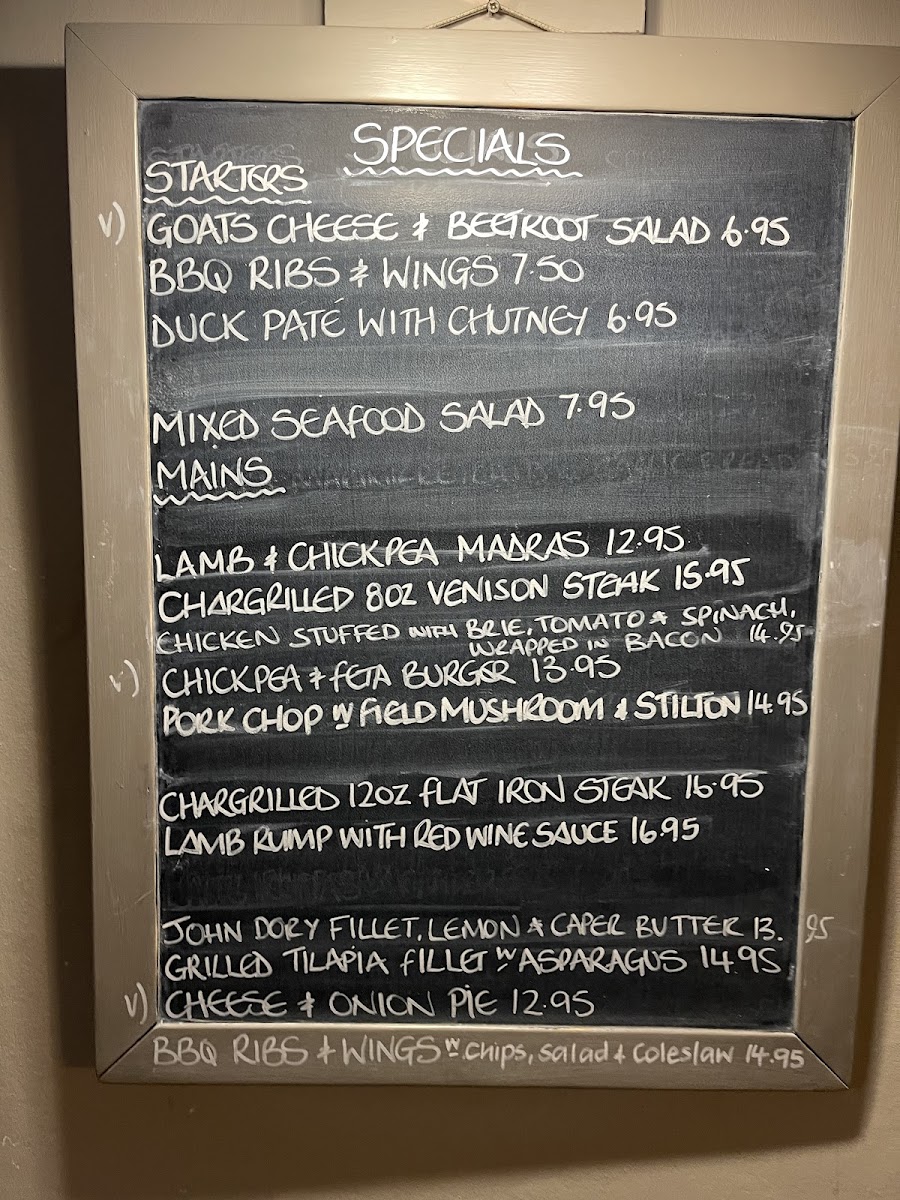 SPECIALS
STARTERS
V) GOATS CHEESE & BEETROOT SALAD 6.95
BBQ RIBS & WINGS 7.50
DUCK PATÉ WITH CHUTNEY 6.95
MIXED SEAFOOD SALAD 7.95
MAINS
LAMB & CHICKPEA MADRAS 12.95
CHARGRILLED 8OZ VENISON STEAK 15.95
CHICKEN STUFFED WITH BRIE, TOMATO & SPINACH,
WRAPPED IN BACON 14.95
V) CHICKPEA & FETA BURGER 13.95
PORK CHOP W FIELD MUSHROOM & STILTON 14.95
CHARGRILLED 12OZ FLAT IRON STEAK 16.95
LAMB RUMP WITH RED WINE SAUCE 16.95
JOHN DORY FILLET, LEMON & CAPER BUTTER 13.95
GRILLED TILAPIA FILLET W ASPARAGUS 14.95
V) CHEESE & ONION PIE 12.95
BBQ RIBS & WINGS W. Chips, salad & Coleslaw 14.95